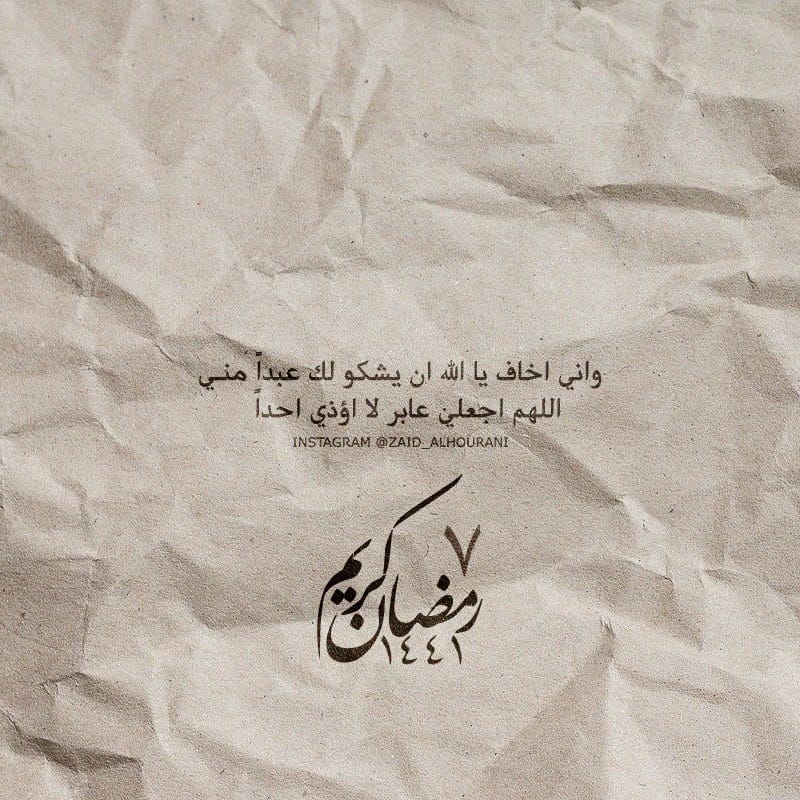 واني اخاف يا الله ان يشكو لك عبداً مني
اللهم اجعلني عابر لا اؤذي احداً
INSTAGRAM @ZAID_ALHOURANI
٧
رمضان كريم
١٤٤١